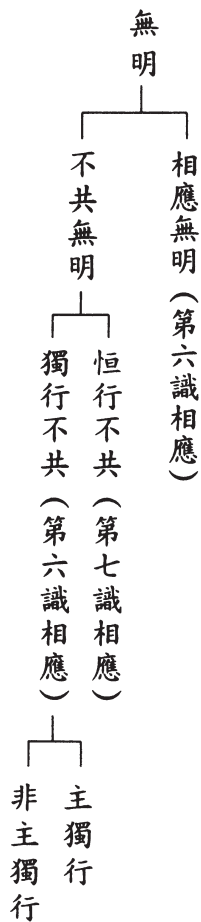 無明
相應無明（第六識相應）
不共無明
恒行不共（第七識相應）
獨行不共（第六識相應）
主獨行
非主獨行